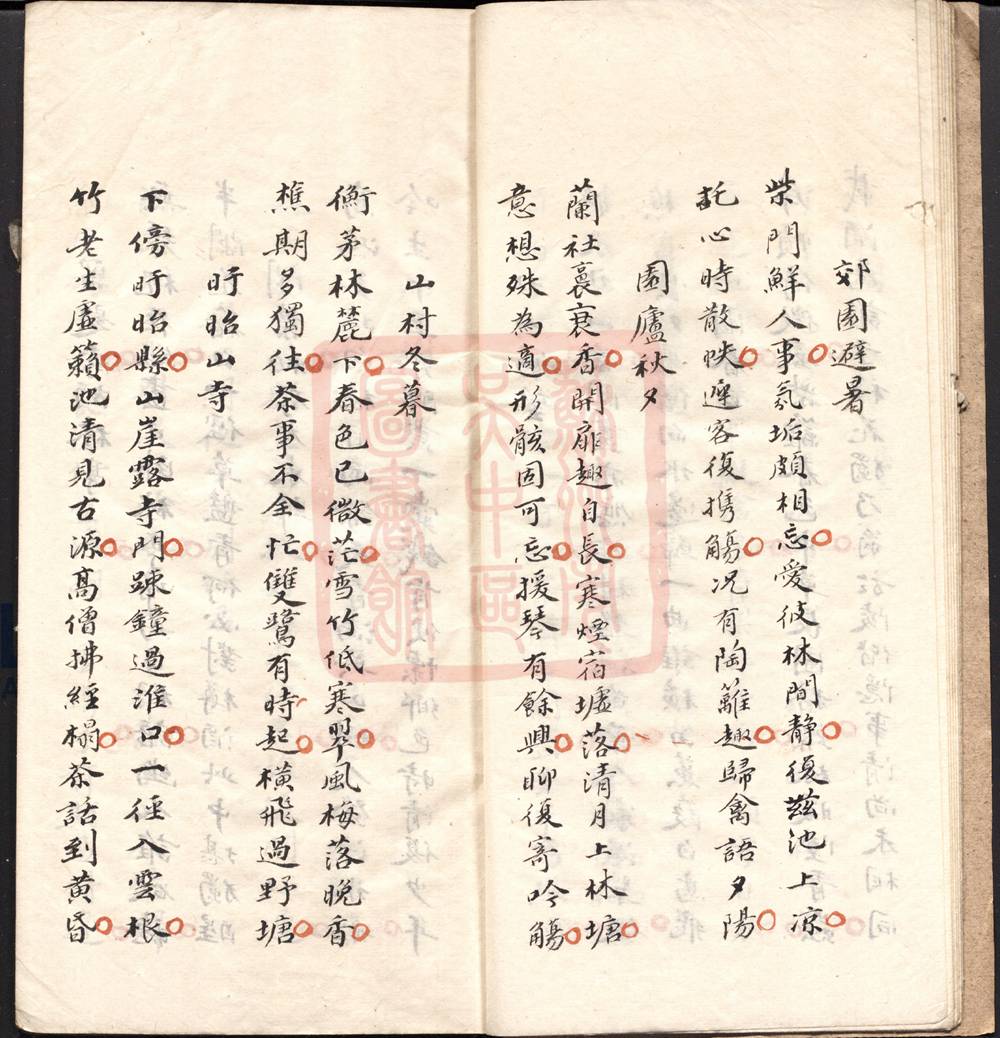 郊園避暑
柴門鮮人事氛垢頗相忘愛彼林間靜復茲池上凉
託心時散帙遲客復携觴况有陶籬趣歸禽語夕陽
園廬秋夕
蘭社裛衰香開扉趣自長寒煙宿墟落清月上林塘
意想殊為適形骸固可忘援琴有餘興聊復寄吟觴
山村冬暮
衡茅林麓下春色已微茫雪竹低寒翠風梅落晚香
樵期多獨往茶事不全忙雙鷺有時起橫飛過野塘
盱眙山寺
下傍盱眙縣山崖露寺門踈鐘過淮口一徑入雲根
竹老生虛籟池清見古源高僧拂經榻茶話到黄昏
蘇州市
吳中區
圖書館